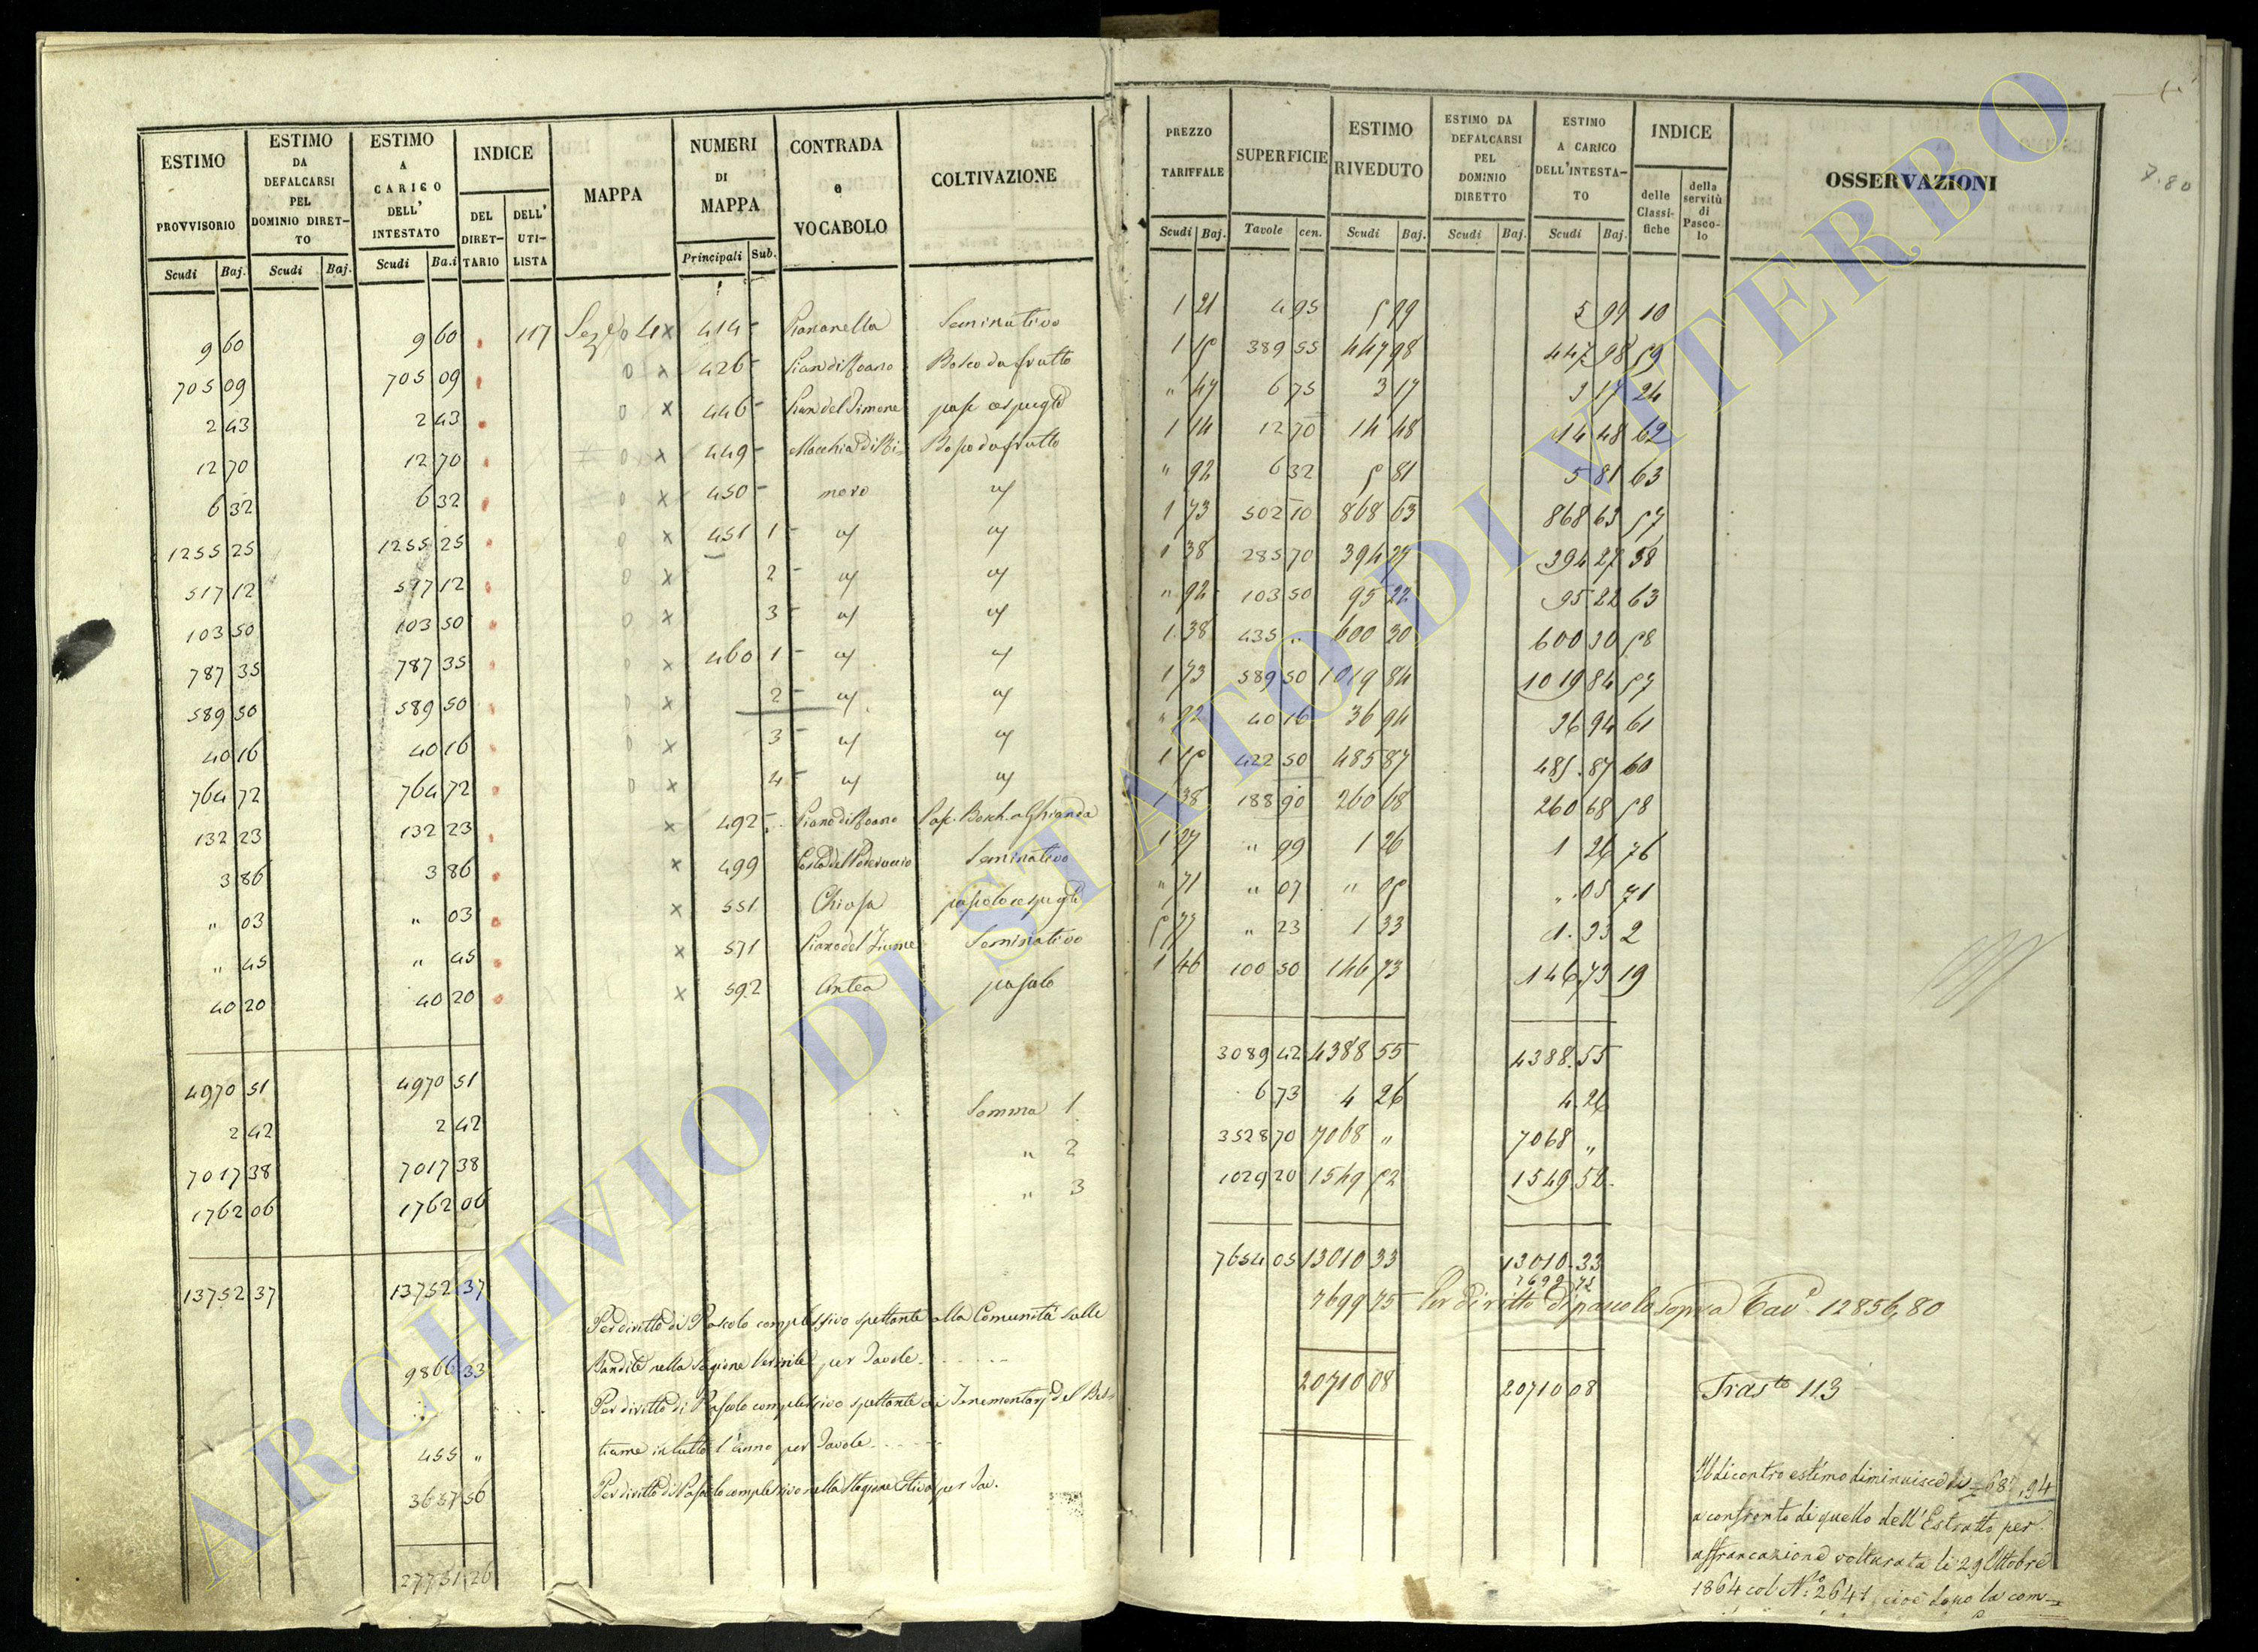 ESTIMO PROVVISORIO Scudi Baj.
ESTIMO DA DEFALCARSI PEL DOMINIO DIRET-TO Scudi Baj.
ESTIMO A CARICO DELL' INTESTATO Scudi Ba.i
INDICE DEL DIRET-TARIO DELL' UTI-LISTA
MAPPA
NUMERI DI MAPPA Principali Sub.
CONTRADA e VOCABOLO
COLTIVAZIONE
9 60 9 60 117 414 - Piananella Seminativo
705 09 705 09 o x 426 - Bosco da frutto
2 43 2 43 o x 446 -
12 70 12 70 o x 449 - Macchia di Bi= Bosco da frutto
6 32 6 32 o x 450 -
1255 25 1255 25 o x 451 1 -
517 12 517 12 o x 2 -
103 50 103 50 o x 3 -
787 35 787 35 o x 460 1 -
589 50 589 50 o x 2 -
40 16 40 16 o x 3 -
764 72 764 72 o x 4 -
132 23 132 23 x 492 -
3 86 3 86 x 499 Seminativo
" 03 " 03 x 551 Chiusa
" 45 " 45 x 571 Piano del Fiume Seminativo
40 20 40 20 x 592 Antea pascolo
4970 51 4970 51
2 42 2 42 Somma 1
7017 38 7017 38 " 2
1762 06 1762 06 " 3
13752 37 13752 37
Per diritto di Pascolo complessivo spettante alla Comunità sulle
9866 33 Bandite nella Stagione per Tavole
Per diritto di Pascolo complessivo spettante del Bes=
455 " tiame in tutto l'anno per Tavole
Per diritto di Pascolo complessivo nella Stagione Estiva per Tav.
PREZZO TARIFFALE Scudi Baj.
SUPERFICIE Tavole cen.
ESTIMO RIVEDUTO Scudi Baj.
ESTIMO DA DEFALCARSI PEL DOMINIO DIRETTO Scudi Baj.
ESTIMO A CARICO DELL'INTESTA-TO Scudi Baj.
INDICE delle Classi-fiche della servitù di Pasco-lo
OSSERVAZIONI
1 21 4 95 5 99 5 99 10
1 15 389 55 447 98 447 98 59
" 47 6 75 3 17 3 17 24
1 14 12 70 14 48 14 48 62
" 92 6 32 5 81 5 81 63
1 73 502 10 868 63 868 63 57
1 38 285 70 394 27 394 27 58
" 92 103 50 95 22 95 22 63
1 38 435 " 600 30 600 30 58
1 73 589 50 1019 84 1019 84 57
" 92 40 16 36 94 36 94 61
1 15 422 50 485 87 485 87 60
1 38 188 90 260 68 260 68 58
1 27 " 99 1 26 1 26 76
" 71 " 07 " 05 " 05 71
5 77 " 23 1 33 1 33 2
1 46 100 50 146 73 146 73 19
3089 42 4388 55 4388 55
6 73 4 26 4 26
3528 70 7068 " 7068 "
1029 20 1549 52 1549 52
7654 05 13010 33 13010 33
7699 75 Per diritto di pascolo sopra Tav. 12856,80
20710 08 20710 08 Tras.to 113
a confronto di quello dell'Estratto per
affrancazione volturata li 29 Ottobre
1864 col N.o 2641 cioè dopo la com=
ARCHIVIO DI STATO DI VITERBO